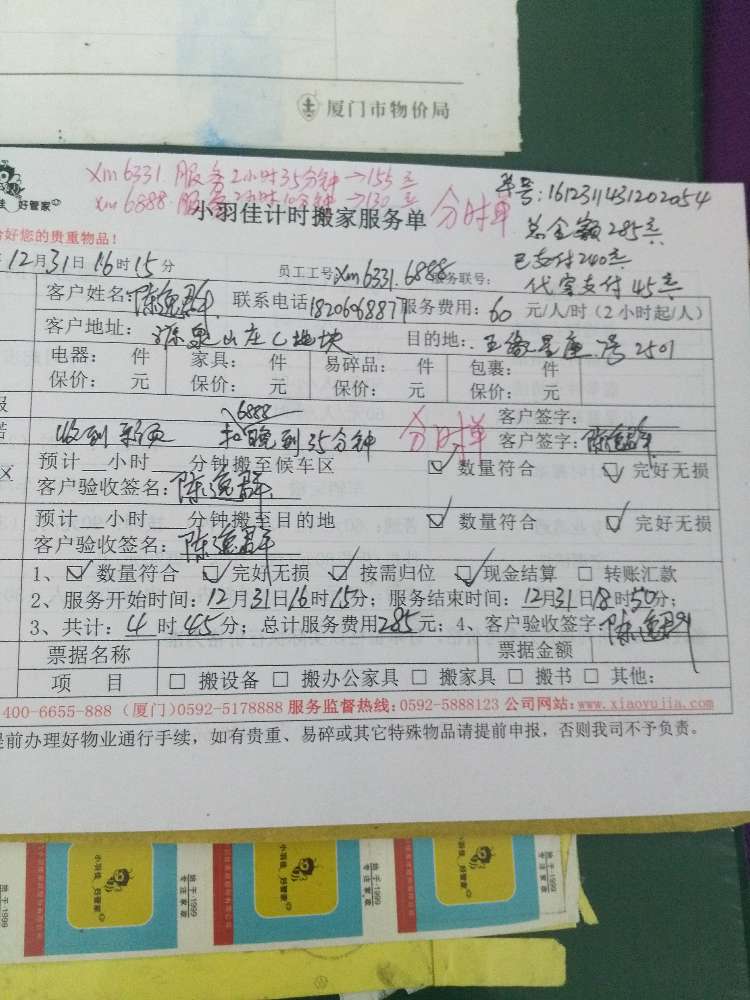 厦门市物价局
Xm6331.服务2小时35分钟→155元
Xm6888.服务2小时10分钟→130元
分时单
单号:1612311431202054
好管家
小羽佳计时搬家服务单
总金额285元
好您的贵重物品!
已支付240元
12月31日16时15分
员工工号Xm6331.6888
服务联号:
代客支付45元
客户姓名:陈
联系电话1820696887
服务费用:60元/人/时(2小时起/人)
客户地址: 山庄C地块
目的地: 五缘星座 号2501
电器: 件 家具: 件 易碎品: 件 包裹: 件
保价: 元 保价: 元 保价: 元 保价: 元
6888
客户签字:
收到 扣晚到35分钟 分时单 客户签字:陈
预计__小时__分钟搬至候车区 ☑ 数量符合 ☑ 完好无损
客户验收签名:陈
预计__小时__分钟搬至目的地 ☑ 数量符合 ☑ 完好无损
客户验收签名:陈
1、☑ 数量符合 ☑ 完好无损 ☑ 按需归位 ☑ 现金结算 □ 转账汇款
2、服务开始时间:12月31日16时15分;服务结束时间:12月31日18时50分;
3、共计:4时45分;总计服务费用285元;4、客户验收签字:陈
票据名称 票据金额
项 目 □ 搬设备 □ 搬办公家具 □ 搬家具 □ 搬书 □ 其他:
400-6655-888 (厦门)0592-5178888 服务监督热线:0592-5888123 公司网站:www.xiaoyujia.com
提前办理好物业通行手续,如有贵重、易碎或其它特殊物品请提前申报,否则我司不予负责。
小羽佳 好管家
始于·1999
专注家庭
小羽佳 好管家
始于·1999
专注家庭
小羽佳 好管家
始于·1999
专注家庭